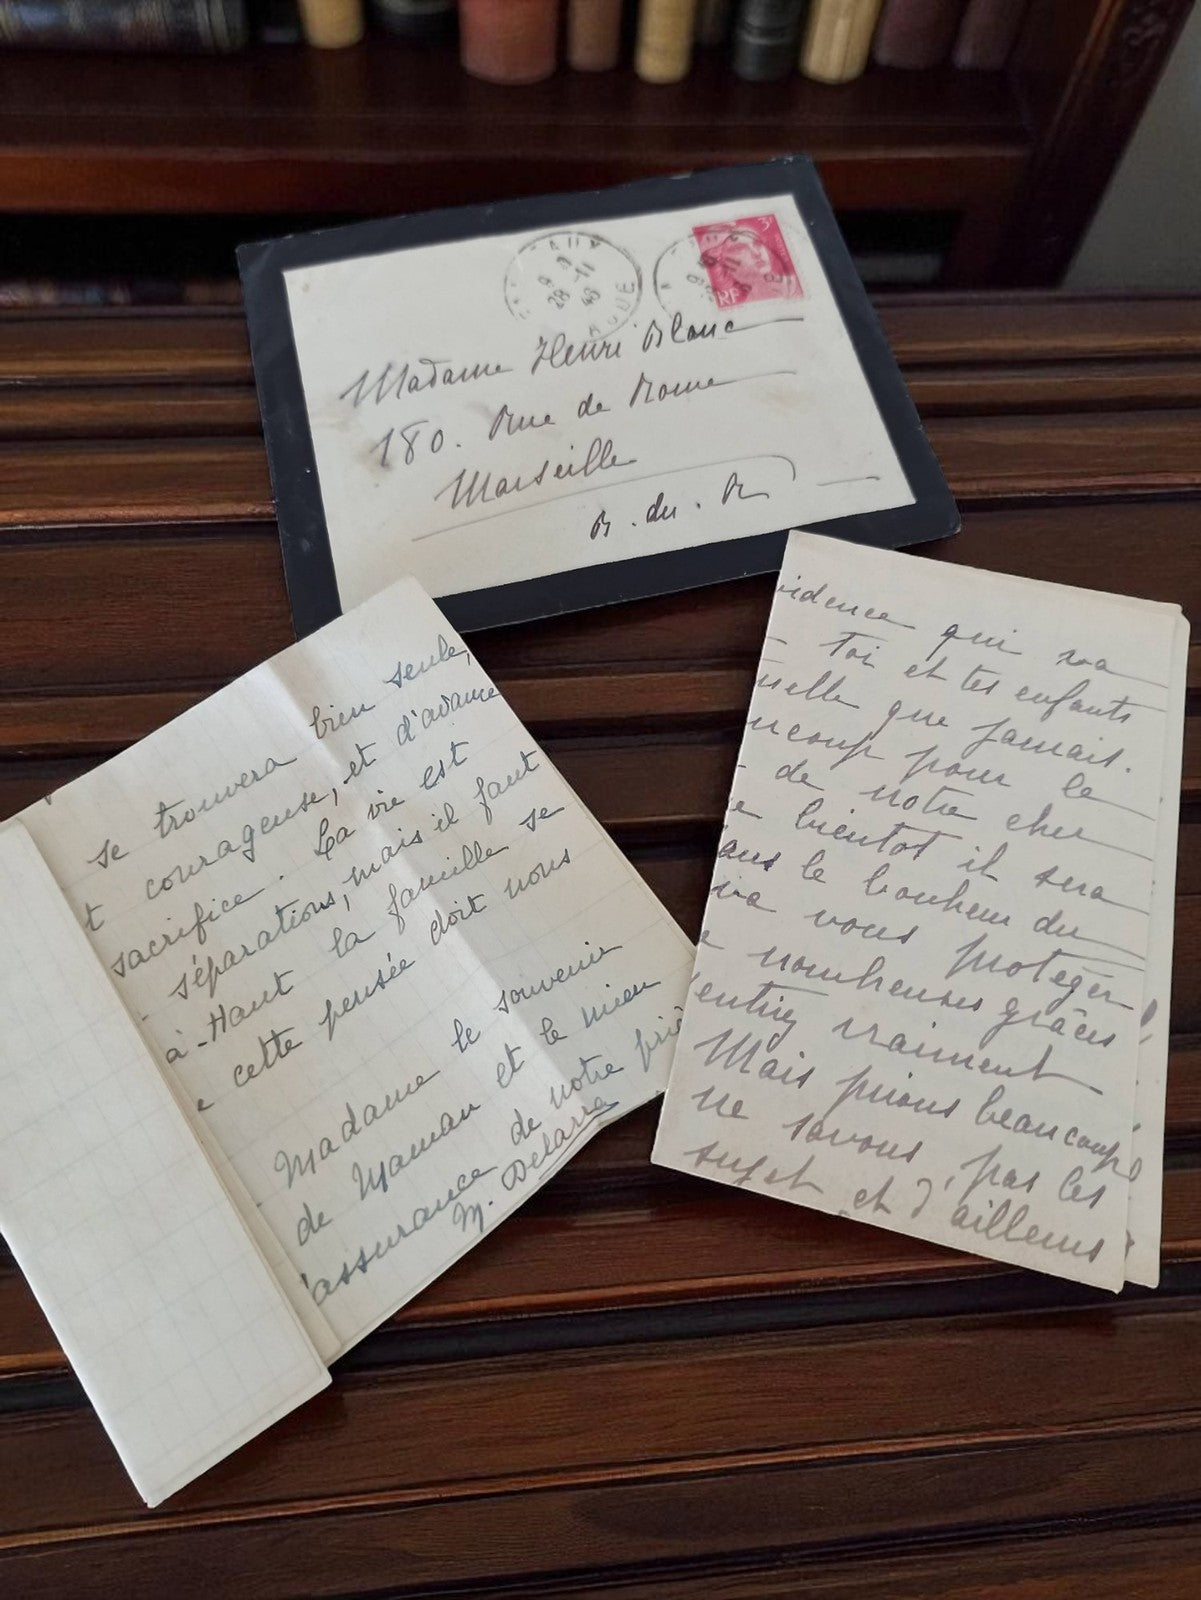 3F
RF
28-11
48
Madame Henri Blanc
180. Rue de Rome
Marseille
B. du. R
se trouvera bien seule,
t courageuse, et d'avance
sacrifice. La vie est
séparations, mais il faut
à-Haut la famille se
cette pensée doit nous
Madame le souvenir
de Maman et le mien
'assurance de notre
M. Delarra
idence qui va
toi et tes enfants
uelle que jamais.
ucoup pour le
de notre cher
e bientôt il sera
ans le bonheur du
va vous protéger
nombreuses grâces
entirez vraiment
Mais prions beaucoup
ne savons pas les
sujet et d'ailleurs